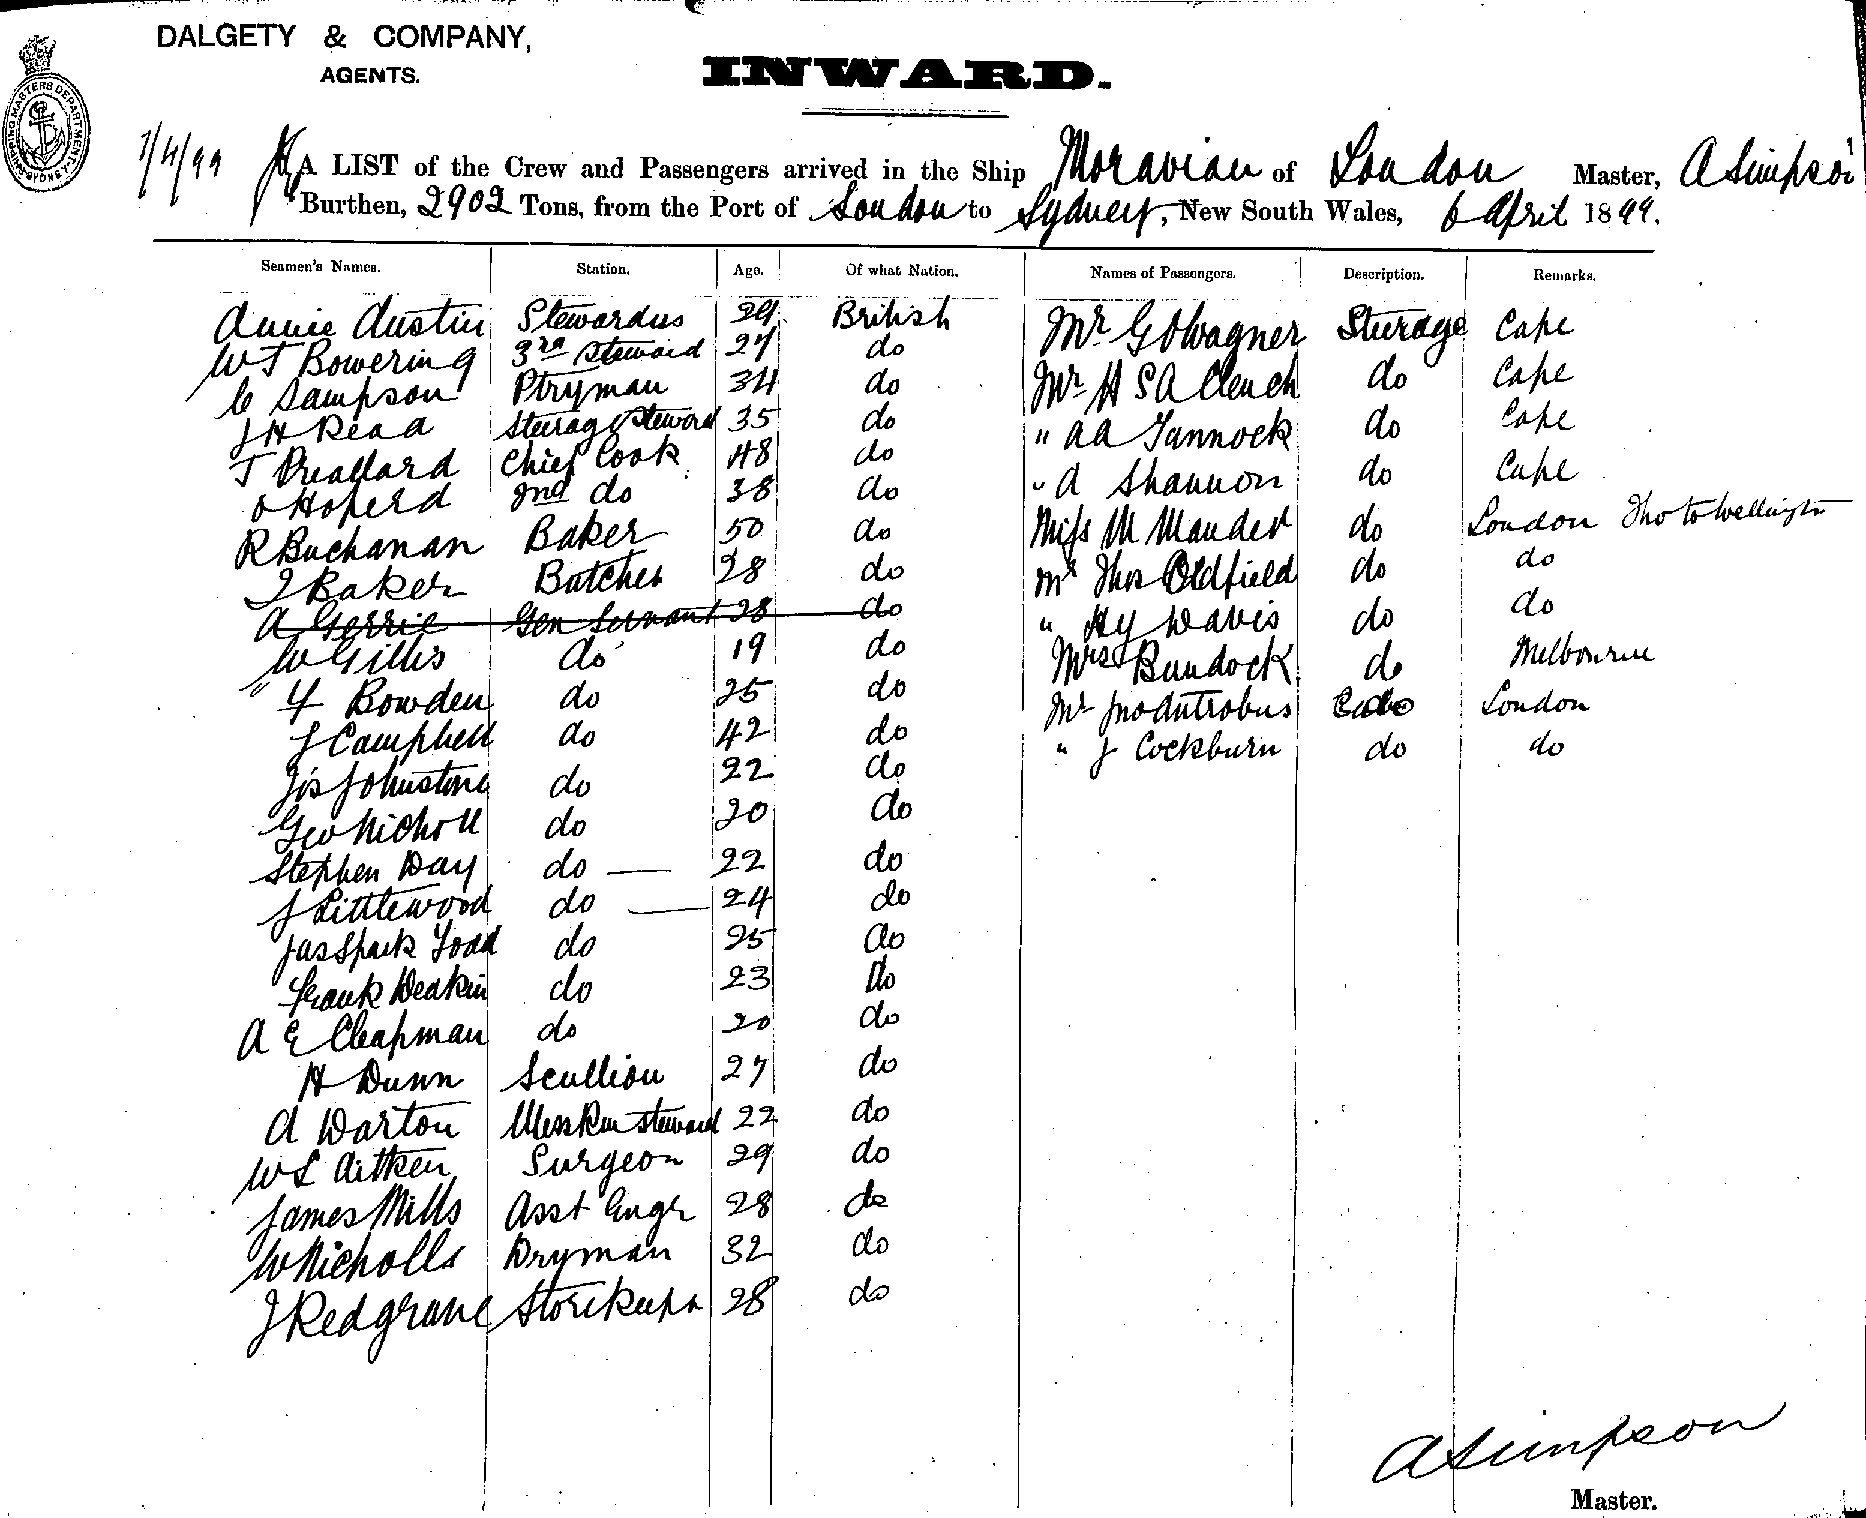 DALGETY & COMPANY,
AGENTS.
INWARD.
SHIPPING MASTERS DEPARTMENT SYDNEY
7/4/99
A LIST of the Crew and Passengers arrived in the Ship Moravian of London Master, A Simpson
Burthen, 2902 Tons, from the Port of London to Sydney, New South Wales, 6 April 1899.
Seamen's Names. Station. Age. Of what Nation. Names of Passengers. Description. Remarks.
Annie Austin Stewardess 29 British Mr G Wagner Steerage Cape
W T Bowering 3rd Steward 27 do
C Sampson Ptryman 34 do Mr H S A Clench do Cape
J H Read Steerage Steward 35 do " A A Tannock do Cape
T Chief Cook 48 do " A Shannon do Cape
2nd do 38 do
R Buchanan Baker 50 do Miss M Maunder do London Tho to Wellington
J Baker Butcher 28 do Mr Thos Oldfield do do
A Gerrie Gen Servant 28 do " Hy Davis do do
W Gillis do 19 do Mrs Bundock do Melbourne
" Y Bowden do 25 do Mr Jno Antrobus do London
J Campbell do 42 do " J Cockburn do do
Jos Johnstone do 22 do
Geo Nicholl do 20 do
Stephen Day do — 22 do
J Littlewood do — 24 do
Jas Spark Todd do 25 do
Frank Deakin do 23 do
A E Chapman do 20 do
H Dunn Scullion 27 do
A Warton Mess Rm Steward 22 do
W L Aitken Surgeon 29 do
James Mills Asst Engr 28 do
W Nicholls Dryman 32 do
J Redgrave Storekeeper 28 do
A Simpson
Master.